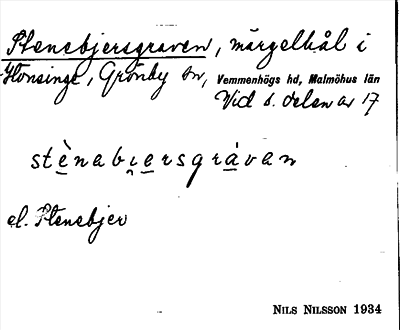 Stenebjersgraven, märgelhål i
Hönsinge, Grönby sn, Vemmenhögs hd, Malmöhus län
Vid s. delen av 17
stènabi̯ersgrávan
el. Stenebjer
NILS NILSSON 1934